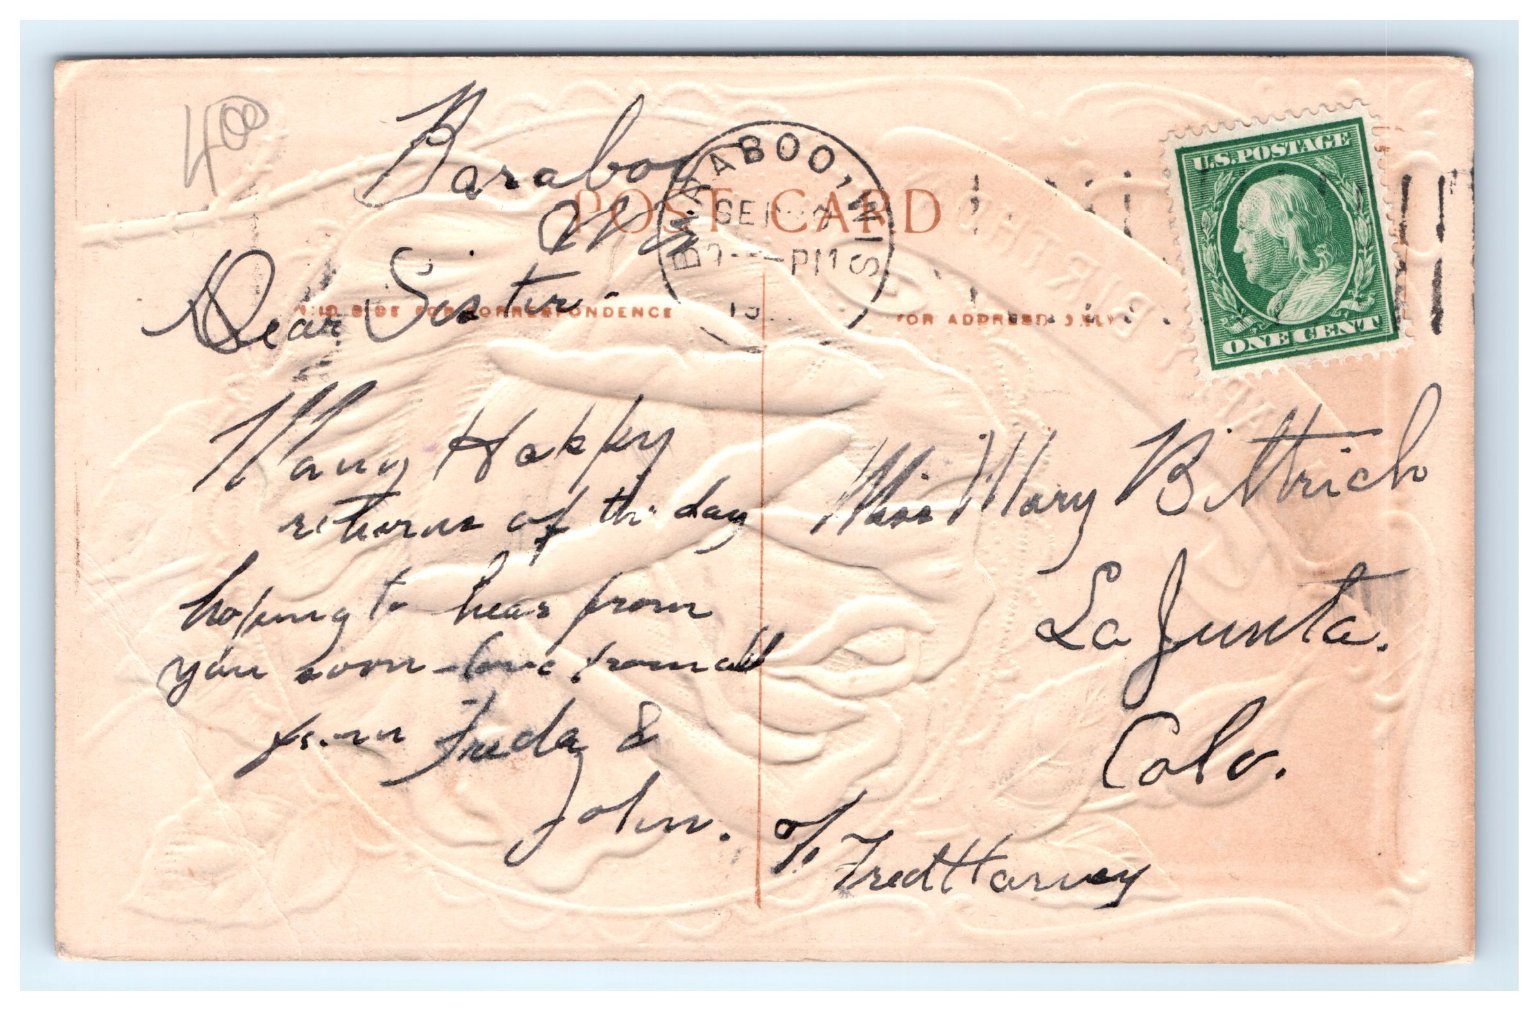 4 00
Baraboo
Wis
POST CARD
BARABOO, WIS
SEP
PM
U.S. POSTAGE
ONE CENT
THIS SIDE FOR CORRESPONDENCE
FOR ADDRESS ONLY
Dear Sister-
Many Happy
returns of the day
hoping to hear from
you soon - love from all
from Freda &
John.
Miss Mary Bittrich
La Junta.
Colo.
c/o Fred Harvey
BIRTHD